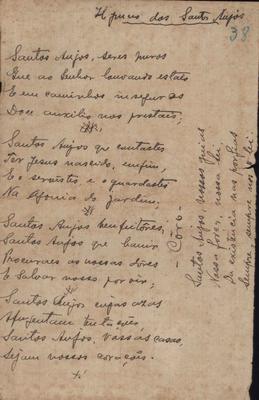 Hymno dos Santos Anjos
38
Santos Anjos, seres puros
Que ao Senhor louvando estais
E em caminhos inseguros
Doce auxilio nos prestais;
Santos Anjos que cantastes
Por Jesus nascido, enfim,
E o servistes e o guardastes
Na Agonia do jardim;
Santos Anjos bemfeitores,
Santos Anjos que banir
Procuraes as nossas dôres
E salvar nosso porvir,
Santos Anjos cujas azas
Afugentam tentações,
Santos Anjos, vossas casas,
Sejam nossos corações.
- Côro -
Santos Anjos, nossos guias
Nossa força, nossa lei
Da existencia nas porfias
Sempre, sempre nos